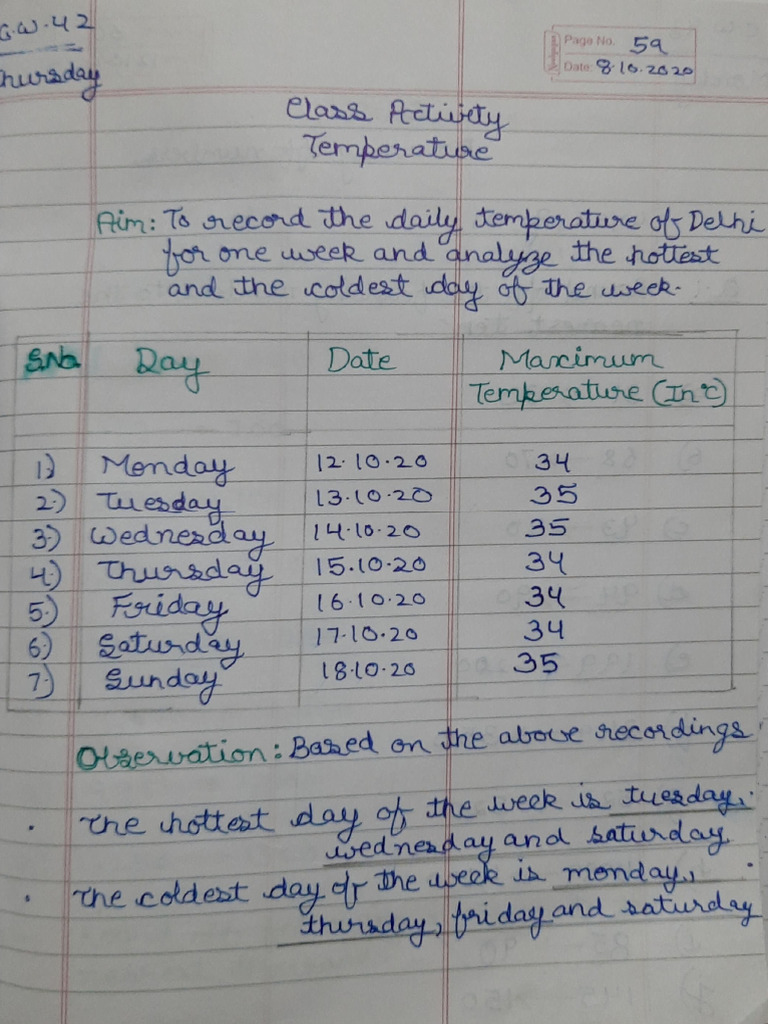 C.W.42
Page No. 59
Thursday
Date: 8.10.2020
Class Activity
Temperature
Aim: To record the daily temperature of Delhi
for one week and analyze the hottest
and the coldest day of the week.
S.No. Day Date Maximum
Temperature (In °C)
1) Monday 12.10.20 34
2) Tuesday 13.10.20 35
3) Wednesday 14.10.20 35
4) Thursday 15.10.20 34
5) Friday 16.10.20 34
6) Saturday 17.10.20 34
7) Sunday 18.10.20 35
Observation: Based on the above recordings
• The hottest day of the week is tuesday,
wednesday and saturday.
• The coldest day of the week is monday,
thursday, friday and saturday